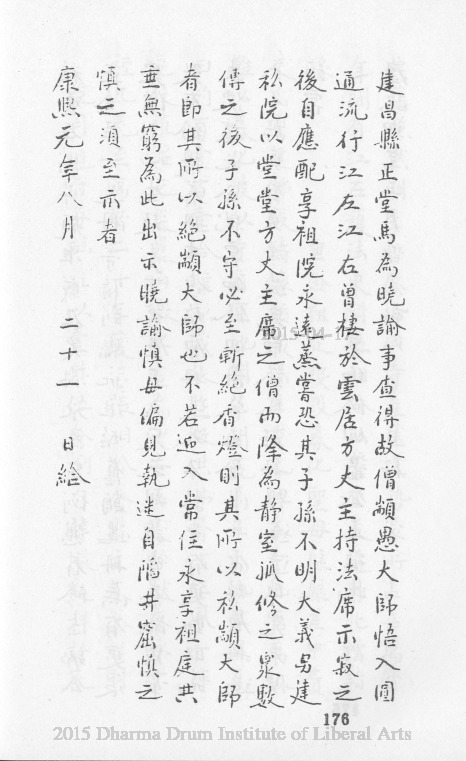 建昌縣正堂馬為曉諭事查得故僧顓愚大師悟入圓
通流行江左江右曾棲於雲居方丈主持法席示寂之
後自應配享祖院永遠蒸嘗恐其子孫不明大義另建
私院以堂堂方丈主席之僧而降為靜室孤修之眾數
傳之後子孫不守必至斬絕香燈則其所以私顓大師
者即其所以絕顓大師也不若迎入常住永享祖庭共
垂無窮為此出示曉諭慎毋偏見執迷自陷井窟慎之
慎之須至示者
康熙元年八月 二十一 日給
176
2015 Dharma Drum Institute of Liberal Arts